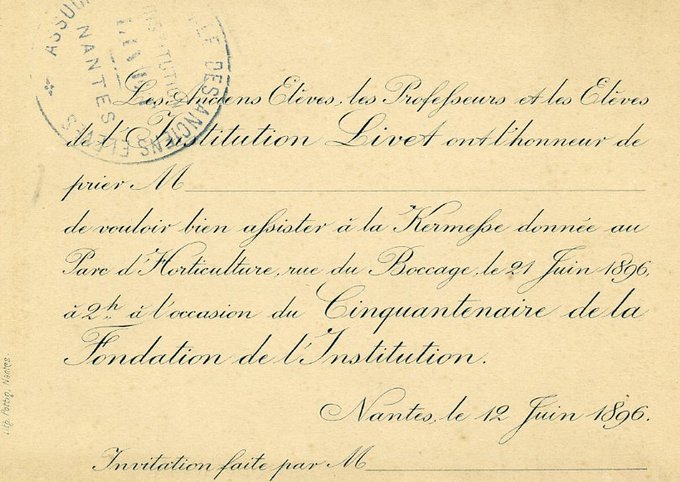 ASSOC
LE DES ANCIENS ÉLÈVES
INSTITUTION
LIVET
NANTES
Les Anciens Elèves, les Professeurs et les Elèves
de l'Institution Livet ont l'honneur de
prier M
de vouloir bien assister à la Kermesse donnée au
Parc d'Horticulture, rue du Boccage, le 21 Juin 1896,
à 2h. à l'occasion du Cinquantenaire de la
Fondation de l'Institution.
Nantes, le 12 Juin 1896.
Invitation faite par M
Nantes